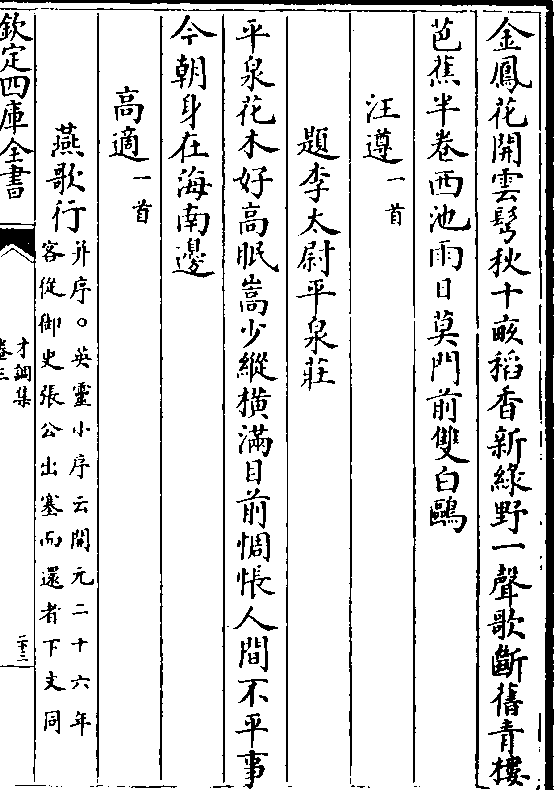 金鳳花開雲髩秋十畝稻香新緑野一聲歌斷舊青樓
芭蕉半卷西池雨日莫門前雙白鷗
汪遵一首
題李太尉平泉莊
平泉花木好高眠嵩少縱横滿目前惆悵人間不平事
今朝身在海南邊
高適一首
燕歌行并序○英靈小序云開元二十六年
客從御史張公出塞而還者下文同
欽定四庫全書
才調集
卷三
二十三